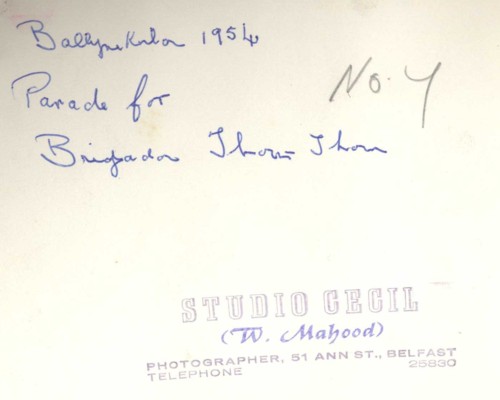 Ballynekinler 1954
No. 4
Parade for
Brigadier
STUDIO CECIL
(W. Mahood)
PHOTOGRAPHER, 51 ANN ST., BELFAST
TELEPHONE 25830